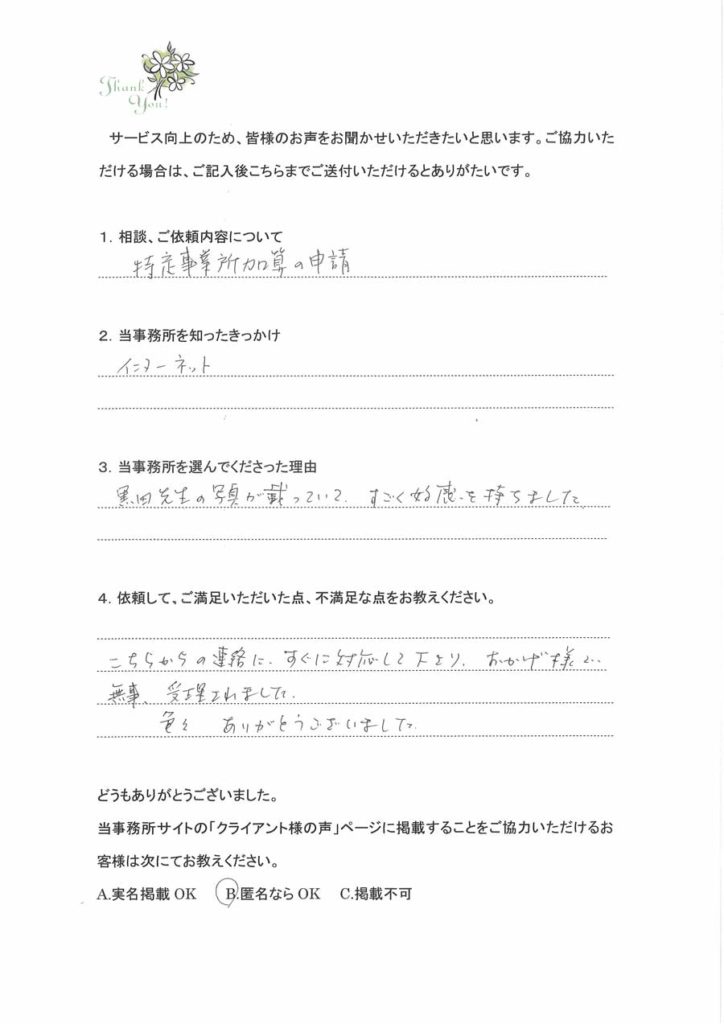 Thank
You!
サービス向上のため、皆様のお声をお聞かせいただきたいと思います。ご協力いた
だける場合は、ご記入後こちらまでご送付いただけるとありがたいです。
1. 相談、ご依頼内容について
特定事業所加算の申請
2. 当事務所を知ったきっかけ
インターネット
3. 当事務所を選んでくださった理由
黒田先生の写真が載っていて、すごく好感を持ちました
4. 依頼して、ご満足いただいた点、不満足な点をお教えください。
こちらからの連絡に、すぐに対応して下さり、おかげ様で
無事、受理されました。
色々 ありがとうございました。
どうもありがとうございました。
当事務所サイトの「クライアント様の声」ページに掲載することをご協力いただけるお
客様は次にてお教えください。
A.実名掲載 OK B.匿名なら OK C.掲載不可